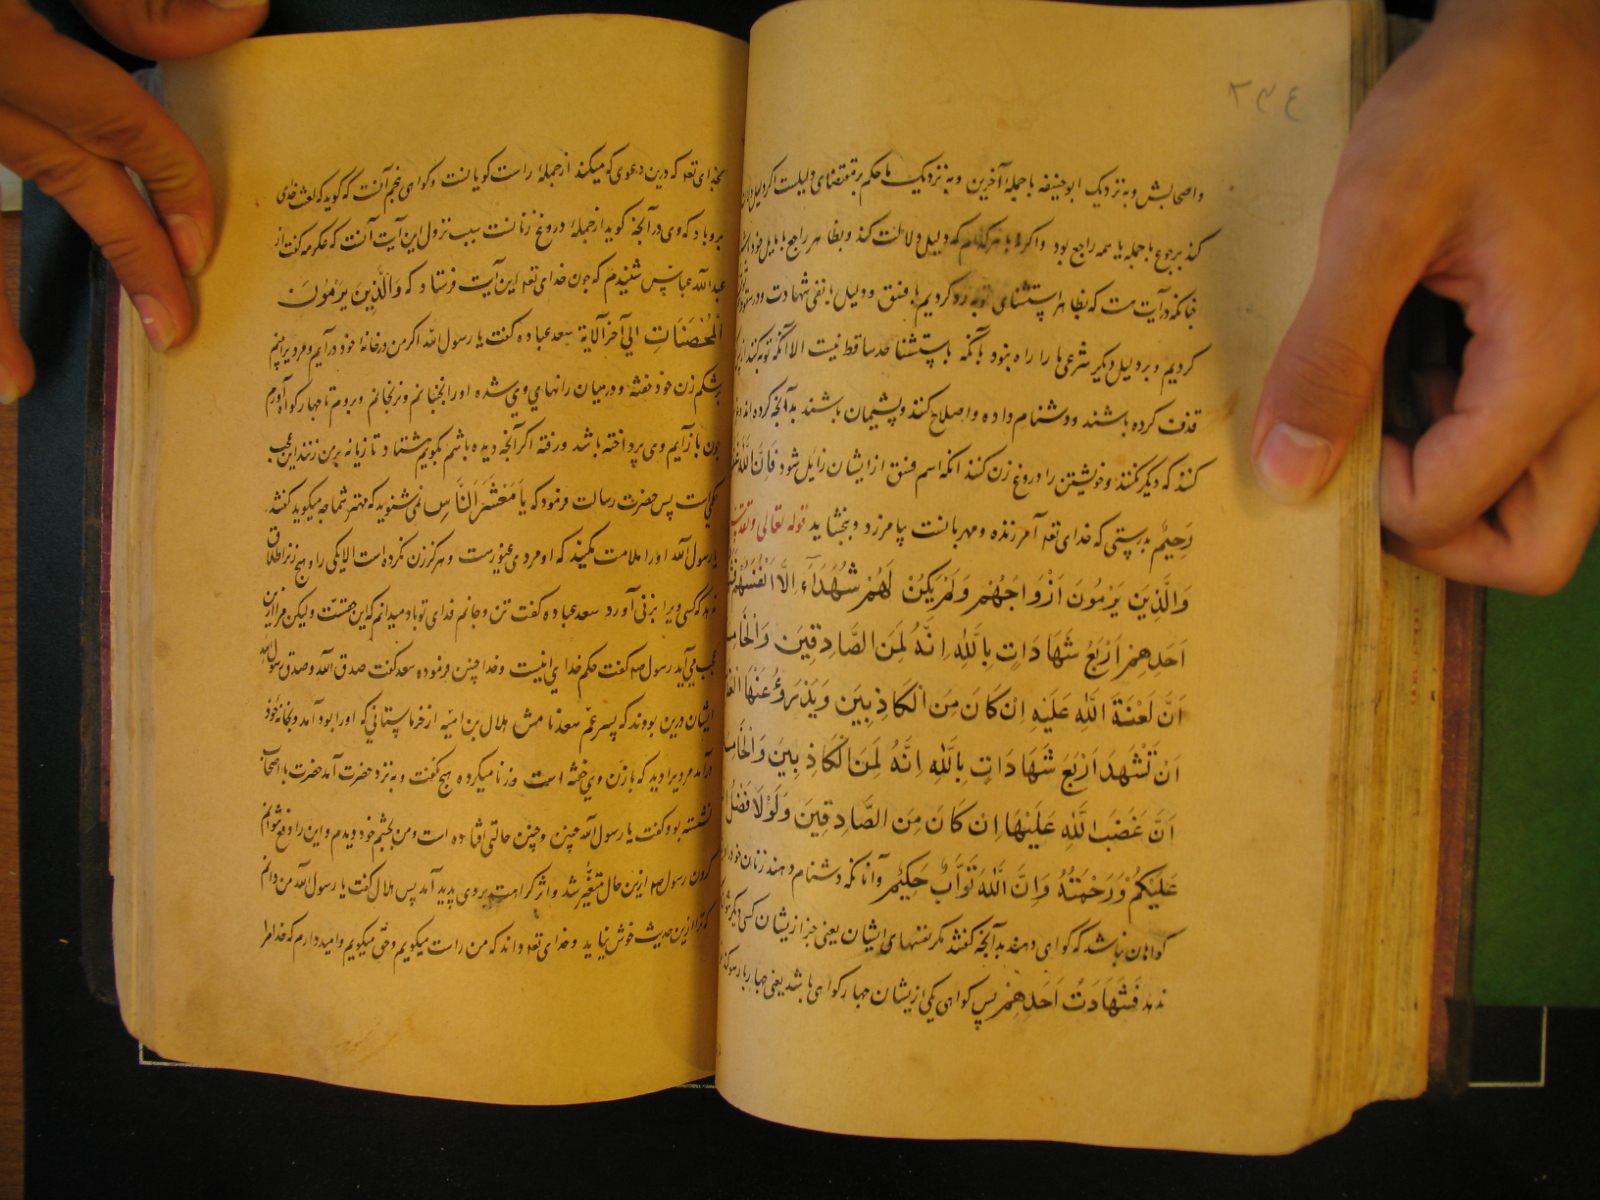 ۲۳۴
واصحابش و به نزدیک ابوحنیفه با جملهٔ آخرین و به نزدیک ما حکم بر مقتضای دلیلست اگر دلیل
کند برجوع با جمله با همه راجع بود واکر که دلیل دلالت کند و بظاهر راجع
چنانکه در آیت ست که بظاهر استثنای توبه رد کردیم با فسق و دلیل با نفی شهادت و
کردیم و بر دلیل دیکر شرعی ما را راه نبود بآنکه باستثنا حد ساقط نیست الا آنکه توبه کنند از
قذف کرده باشند و دشنام داده و اصلاح کنند و پشیمان باشند بدآنچه کرده اند
کنند که دیکر نکنند و خویشتن را دروغ زن کنند آنکه اسم فسق از ایشان زایل شود فَاِنَّ اللّٰهَ
رَحِیمٌ بدرستی که خدای تعه آمرزنده و مهربانست بیامرزد و ببخشاید قوله تعالی و تقدس
وَالَّذِینَ یَرْمُونَ اَزْوَاجَهُمْ وَلَمْ یَکُنْ لَهُمْ شُهَدَآءُ اِلَّا اَنْفُسُهُمْ
اَحَدِهِمْ اَرْبَعُ شَهَادَاتٍ بِاللّٰهِ اِنَّهُ لَمِنَ الصَّادِقِینَ وَالْخَامِسَةُ
اَنَّ لَعْنَةَ اللّٰهِ عَلَیْهِ اِنْ کَانَ مِنَ الْکَاذِبِینَ وَیَدْرَؤُ عَنْهَا
اَنْ تَشْهَدَ اَرْبَعَ شَهَادَاتٍ بِاللّٰهِ اِنَّهُ لَمِنَ الْکَاذِبِینَ وَالْخَامِسَةَ
اَنَّ غَضَبَ اللّٰهِ عَلَیْهَا اِنْ کَانَ مِنَ الصَّادِقِینَ وَلَوْلَا فَضْلُ
عَلَیْکُمْ وَرَحْمَتُهُ وَاَنَّ اللّٰهَ تَوَّابٌ حَکِیمٌ وآنانکه دشنام دهند زنان خود
کواهان نباشد که کواهی دهند بدآنچه گفتند مکر نفسهای ایشان یعنی جز از یشان کسی دیکر
ندهد فَشَهَادَتُ اَحَدِهِمْ پس کواهی یکی از یشان چهار کواهی باشد یعنی چهار بار
بخدای تعه که درین دعوی که میکند از جملهٔ راست کویانست و کواهی پنجم آنست که کوید که لعنت خدای
برو باد که وی در آنچه کوید از جملهٔ دروغ زنانست سبب نزول این آیت آنست که عکرمه کفت از
عبدالله عباس شنیدم که چون خدای تعه این آیت فرستاد که وَالَّذِینَ یَرْمُونَ
الْمُحْصَنَاتِ الی آخر الآیة سعد عباده کفت یا رسول الله اکر من در خانهٔ خود درآیم و مردیرا بینم
بر شکم زن خود خفته و در میان رانهای وی شده او را نجنبانم و نرنجانم و بروم تا چهار کواه آورم
چون بازآیم وی پرداخته باشد و رفته اکر آنچه دیده باشم بکویم هشتاد تازیانه بر من زنند این عجب
حکمی است پس حضرت رسالت فرمود که یَا مَعْشَرَ النَّاسِ نمی شنوید که مهتر شما چه میکوید کفتند
یا رسول الله او را ملامت مکنید که او مردی غیورست و هرکز زن نکرده است الا یکی را و هیچ زن را طلاق
نداد که کسی ویرا بزنی آورد سعد عباده کفت تن و جانم فدای تو باد میدانم که این حقست ولیکن مرا ازین
عجب می آید رسول صه کفت حکم خدای اینست و خدا چنین فرموده سعد کفت صدق الله و صدق رسول الله
ایشان درین بودند که پسر عم سعد نامش هلال بن امیه از خرماستانی که او را بود آمد و بخانهٔ خود
درآمد مردیرا دید که با زن وی خفته است و زنا میکرده هیچ نکفت و به نزد حضرت آمد حضرت با اصحاب
نشسته بود کفت یا رسول الله چنین و چنین حالتی افتاده است و من بچشم خود دیدم و این را دفع نتوانم
کردن رسول صه ازین حال متغیر شد و اثر کراهت بر وی پدید آمد پس هلال کفت یا رسول الله من دانم
که ترا ازین حدیث خوش نیاید و خدای تعه داند که من راست میکویم و حق میکویم و امید دارم که خدا مرا